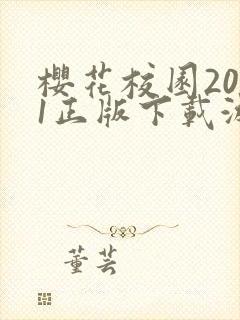 樱花校园20
1正版下载
董芸